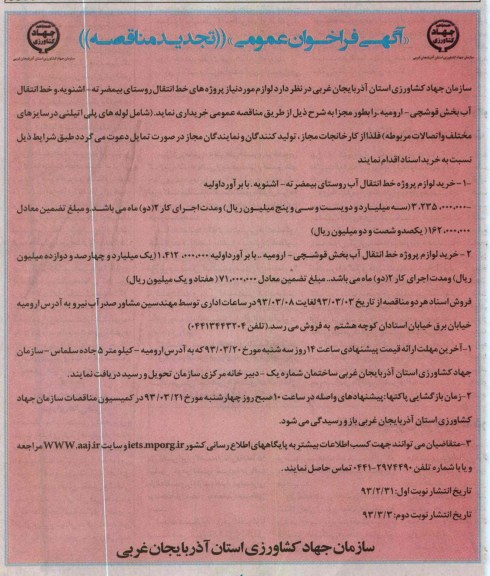 «آگهی فراخوان عمومی»((تجدید مناقصه))
جهاد
کشاورزی
جهاد
کشاورزی
سازمان جهاد کشاورزی استان آذربایجان غربی در نظر دارد لوازم مورد نیاز پروژه های خط انتقال روستای بیمضرته - اشنویه.و خط انتقال
آب بخش قوشچی - ارومیه .را بطور مجزا به شرح ذیل از طریق مناقصه عمومی خریداری نماید. (شامل لوله های پلی اتیلنی در سایزهای
مختلف واتصالات مربوطه) فلذا از کارخانجات مجاز ، تولید کنندگان و نمایندگان مجاز در صورت تمایل دعوت می گردد طبق شرایط ذیل
نسبت به خرید اسناد اقدام نمایند
۱- خرید لوازم پروژه خط انتقال آب روستای بیمضرته - اشنویه .با برآورداولیه
۳،۲۳۵،۰۰۰،۰۰۰-(سه میلیارد و دویست و سی و پنج میلیون ریال) ومدت اجرای کار ۲(دو) ماه می باشد.و مبلغ تضمین معادل
۱۶۲،۰۰۰،۰۰۰ (یکصدو شصت و دو میلیون ریال)
۲- خرید لوازم پروژه خط انتقال آب بخش قوشچی - ارومیه ..با برآورداولیه ۱،۴۱۲،۰۰۰،۰۰۰(یک میلیارد و چهارصد و دوازده میلیون
ریال) ومدت اجرای کار ۲(دو) ماه می باشد.. مبلغ تضمین معادل ۷۱،۰۰۰،۰۰۰ (هفتاد و یک میلیون ریال)
فروش اسناد هر دو مناقصه از تاریخ ۹۳/۰۳/۰۳ لغایت ۹۳/۰۳/۰۸ در ساعات اداری توسط مهندسین مشاور صدر آب نیرو به آدرس ارومیه
خیابان برق خیابان استادان کوچه هشتم به فروش می رسد.(تلفن ۰۴۴۱۳۴۴۳۲۰۴)
۱-آخرین مهلت ارائه قیمت پیشنهادی ساعت ۱۴ روز سه شنبه مورخ ۹۳/۰۳/۲۰ که به آدرس ارومیه - کیلومتر ۵ جاده سلماس -سازمان
جهاد کشاورزی استان آذربایجان غربی ساختمان شماره یک - دبیر خانه مرکزی سازمان تحویل و رسید دریافت نمایند.
۲-زمان بازگشایی پاکتها: پیشنهادهای واصله در ساعت ۱۰ صبح روز چهارشنبه مورخ ۹۳/۰۳/۲۱ در کمیسیون مناقصات سازمان جهاد
کشاورزی استان آذربایجان غربی باز و رسیدگی می شود.
۳-متقاضیان می توانند جهت کسب اطلاعات بیشتر به پایگاههای اطلاع رسانی کشور iets.mporg.ir وسایت WWW.aaj.ir مراجعه
و یا با شماره تلفن ۲۹۷۴۴۹۰-۰۴۴۱ تماس حاصل نمایند.
تاریخ انتشار نوبت اول: ۹۳/۲/۳۱
تاریخ انتشار نوبت دوم: ۹۳/۳/۳
سازمان جهاد کشاورزی استان آذربایجان غربی